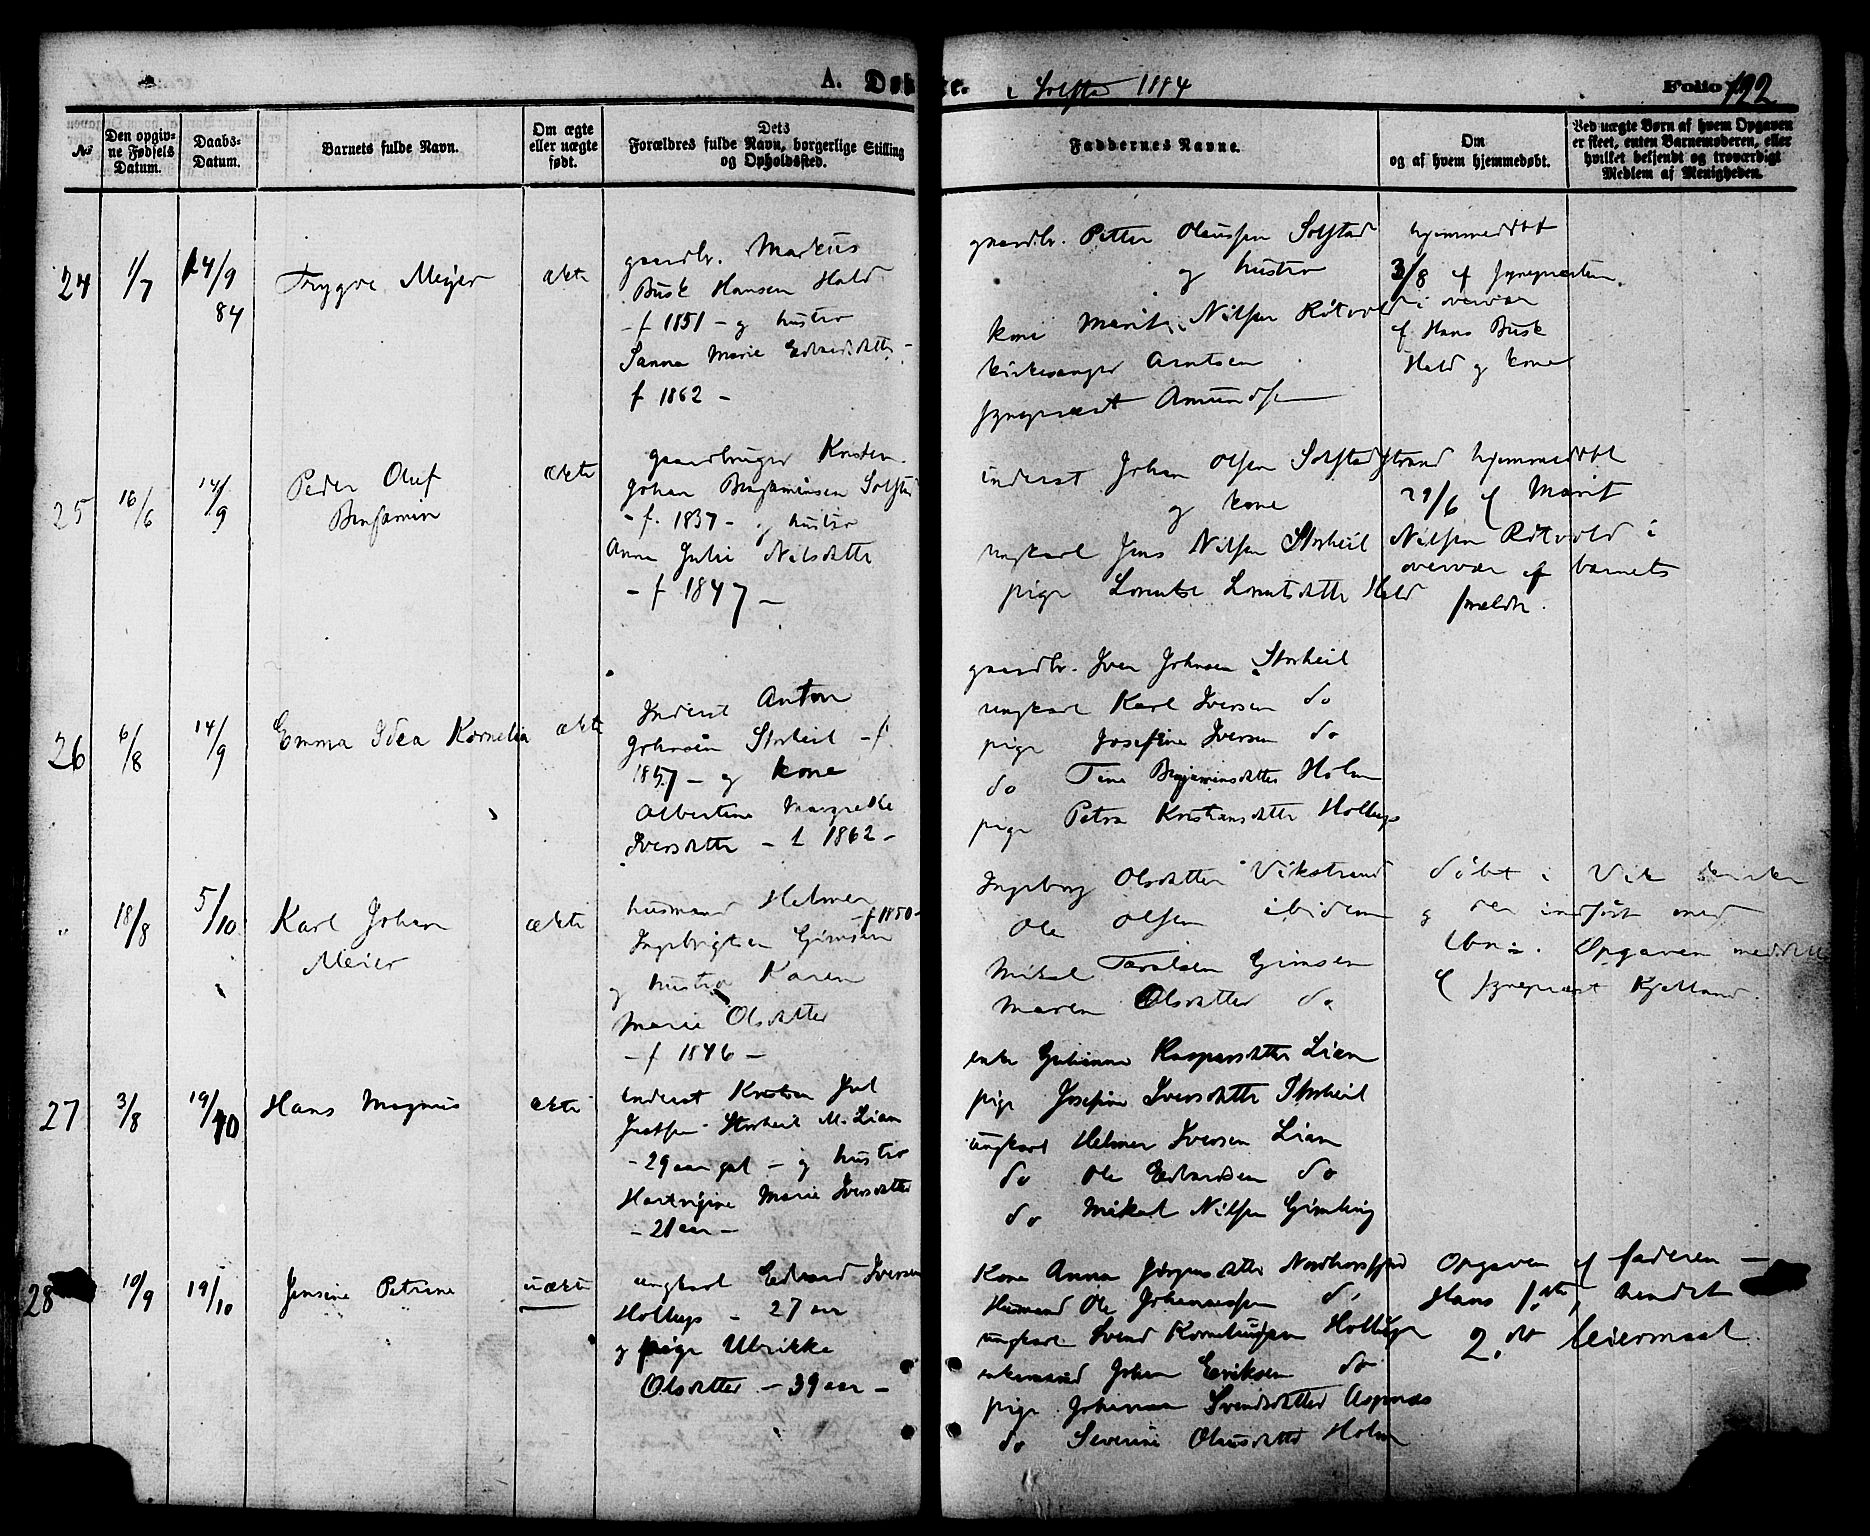 A. Døbte. i Solstad 1884 Folio 192
No
Den opgivne Fødsels Datum.
Daabs-Datum.
Barnets fulde Navn.
Om ægte eller uægte født.
Dets Forældres fulde Navn, borgerlige Stilling og Opholdssted.
Faddernes Navne.
Om og af hvem hjemmedøbt.
Ved uægte Børn af hvem Opgaven er skeet, enten Barnemoderen, eller hvilket bekjendt og troværdigt Medlem af Menigheden.
24 1/7 14/9 84 Trygve Meyer ækte
gaardbr. Markus
Busk Hansen Hald
- f 1851 - og hustro
Sanna Marie Edvardsdatter -
f 1862 -
gaardbr. Petter Olaussen Solstad
og hustro
kone Marit Nilsen Rötvold
kirkesanger Arntsen
sogneprest Amundsen
hjemmedöbt
3/8 af sognepresten
i overvær
af Hans Busk
Hald og kone
25 16/6 14/9 Peder Oluf
Benjamin
ækte
gaardbruger Kristen
Johan Benjaminsen Solstad
- f. 1837 - og hustro
Anna Julie Nilsdatter
- f 1847 -
inderst Johan Olsen Solstadstrand
og kone
ungkarl Jens Nilsen Storheil
pige Lorentse Lorntsdatter Hald
hjemmedöbt
29/6 af Marit
Nilsen Rötvold i
overvær af barnets
forældre.
26 6/8 14/9 Emma Idea Kornelia ækte
Inderst Anton
Johnsen Storheil - f.
1857 - og kone
Albertine Margrethe
Iversdatter - f 1862 -
gaardbr. Iver Johnsen Storheil
ungkarl Karl Iversen do
pige Josefine Iversen do
do Tine Benjaminsdatter Holm
pige Petra Kristiansdatter Holbugs
" 18/8 5/10 Karl Johan
Meier
ækte
husmand Helmer
- f 1850 -
Ingebrigtsen Gimsen
og hustro Karen
Marie Olsdatter
- f 1846 -
Ingeborg Olsdatter Vikstrand
Ole Olsen ibidem
Mikal Taraldsen Gimsen
Maren Olsdatter do
döbt i Vik kirke
og der indfört med
Opgaven meddelt
af sogneprest Kjelland.
27 3/8 19/10 Hans Magnus ækte
inderst Kristen Jul
Storheil M. Lian
- 29 aar gal - og hustro
Hartvigine Marie Iversdatter
- 21 aar -
enke Julianna Kaspersdatter Lian
pige Josefine Iversdatter Storheil
ungkarl Helmer Iversen Lian
do Ole Edvardsen do
do Mikal Nilsen Gimling
28 10/9 19/10 Jensine Petrine uækte
ungkarl Edvard Iversen
Holbugs - 27 aar
og pige Ulrikke
Olsdatter - 39 aar -
Kone Anna Jörgensdatter Nordhorsfjord
Husmand Ole Johannessen do
ungkarl Svend Korneliussen Holbugs
enkemand Johan Eriksen do
pige Johanna Svendsdatter Aspenes
do Severine Olausdatter Holm
Opgaven af faderen -
Hans 1ste, hendes
2det leiermaal.